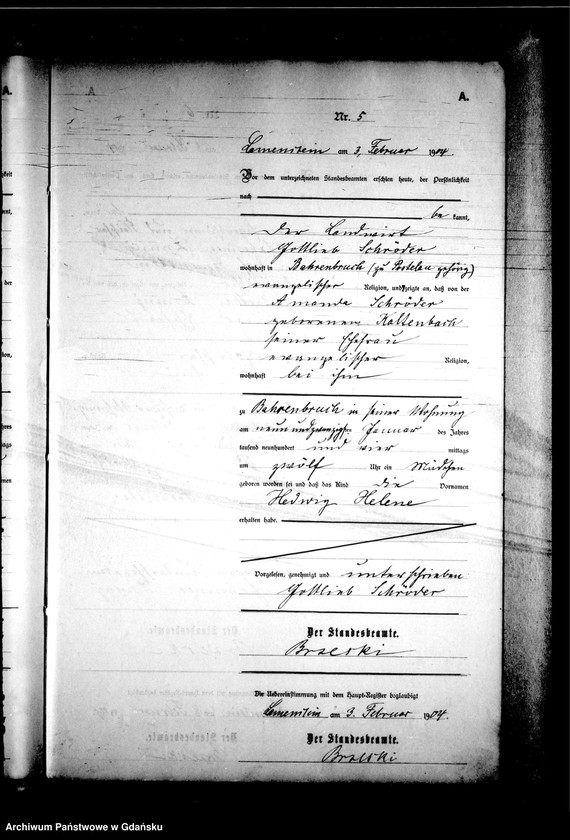 A.
A.
Nr. 5
Lamenstein am 3. Februar 1904.
Vor dem unterzeichneten Standesbeamten erschien heute, der Persönlichkeit
nach
be kannt,
der Landwirt
Gottlieb Schröder
wohnhaft in Bahrenbruch (zu Postelau gehörig)
evangelischer Religion, und zeigte an, daß von der
Amanda Schröder
geborenen Kaltenbach
seiner Ehefrau
evangelischer Religion,
wohnhaft bei ihm
zu Bahrenbruch in seiner Wohnung
am neun und zwanzigsten Januar des Jahres
tausend neunhundert und vier mittags
um zwölf Uhr ein Mädchen
geboren worden sei und daß das Kind die Vornamen
Hedwig Helene
erhalten habe.
Vorgelesen, genehmigt und unterschrieben
Gottlieb Schröder
Der Standesbeamte.
Die Uebereinstimmung mit dem Haupt-Register beglaubigt
Lamenstein am 3. Februar 1904.
Der Standesbeamte.
Archiwum Państwowe w Gdańsku